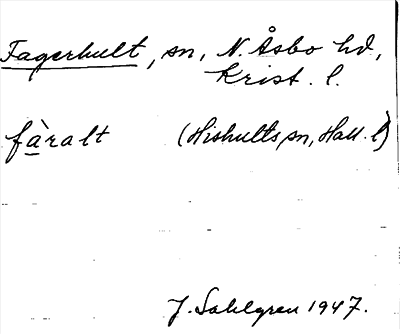 Fagerhult, sn, N. Åsbo hd,
Krist. l.
fàralt (Hishults sn, Hall. l)
J. Sahlgren 1947.